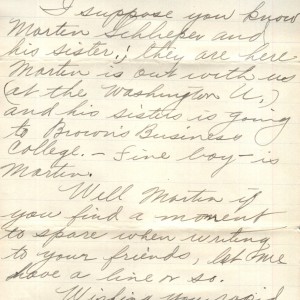 I suppose you know
Morten Schlieper and
his sister; they are here
Morten is out with us
(at the Washington U.)
and his sisters is going
to Brown's Business
College. - Fine boy - is
Morten.
Well Morten if
you find a moment
to spare when writing
to your friends, let me
have a line or so.
Wishing you